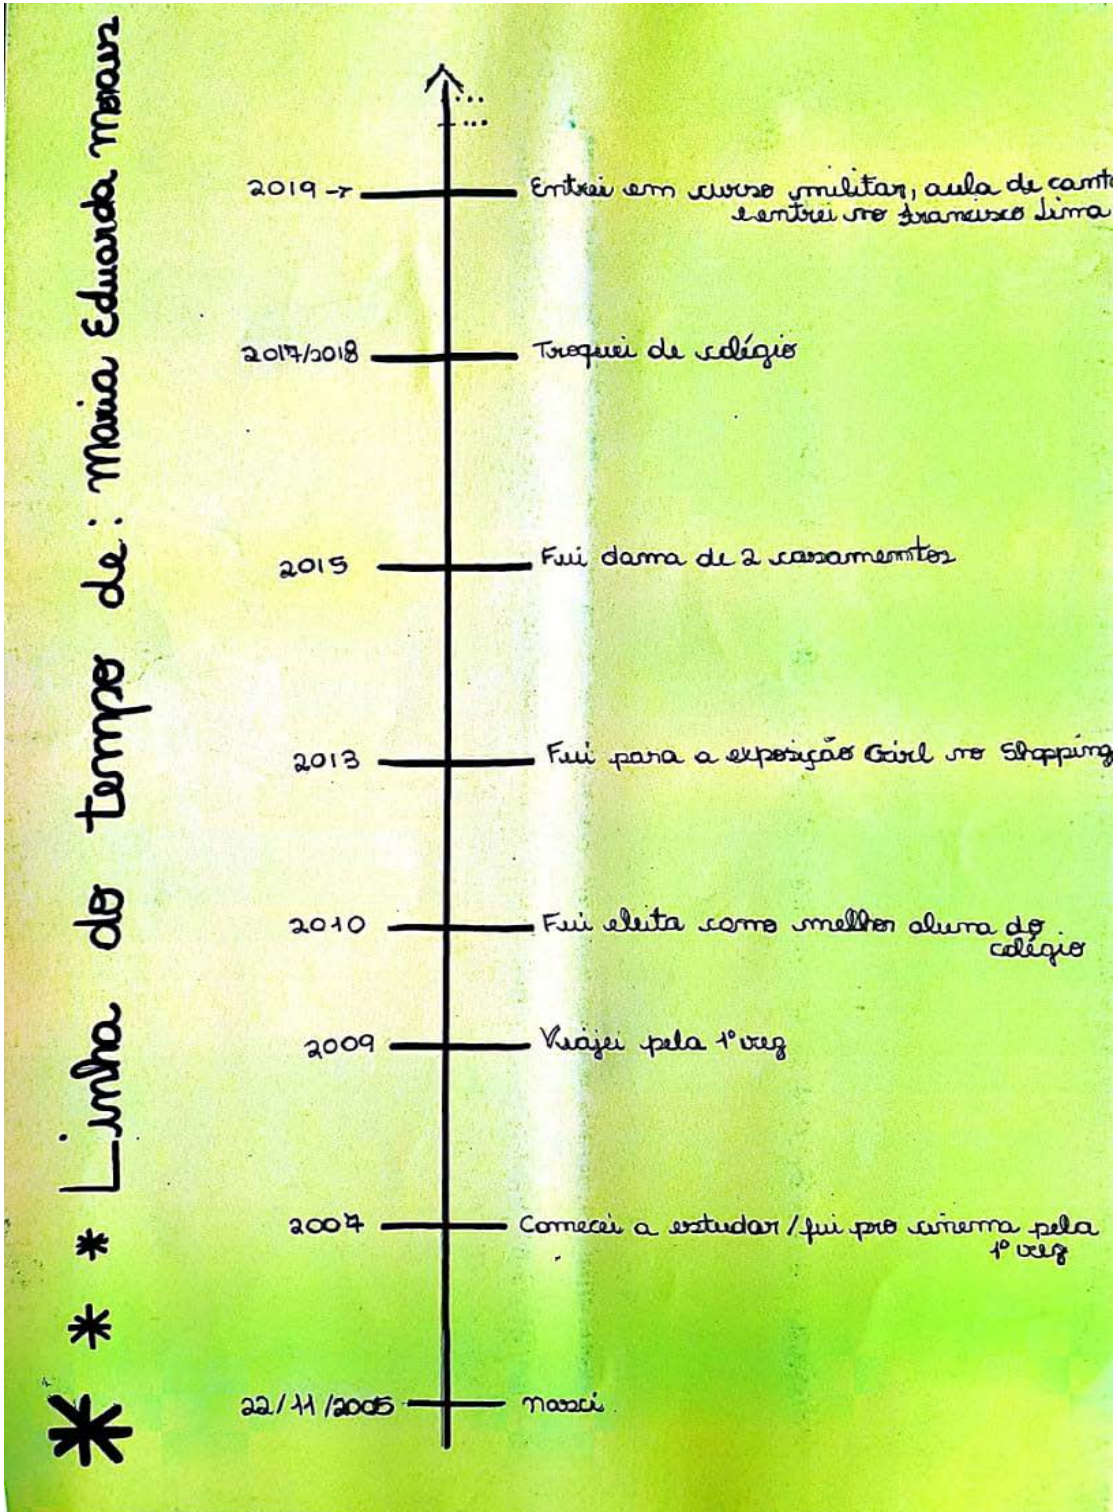 Linha do tempo de: Maria Eduarda Morais
2019 → Entrei em curso militar, aula de canto
e entrei no Francisco Lima
2017/2018 Troquei de colégio
2015 Fui dama de 2 casamentos
2013 Fui para a exposição Girl no Shopping
2010 Fui eleita como melhor aluna do
colégio
2009 Viajei pela 1º vez
2007 Comecei a estudar/fui pro cinema pela
1º vez
22/11/2005 nasci.